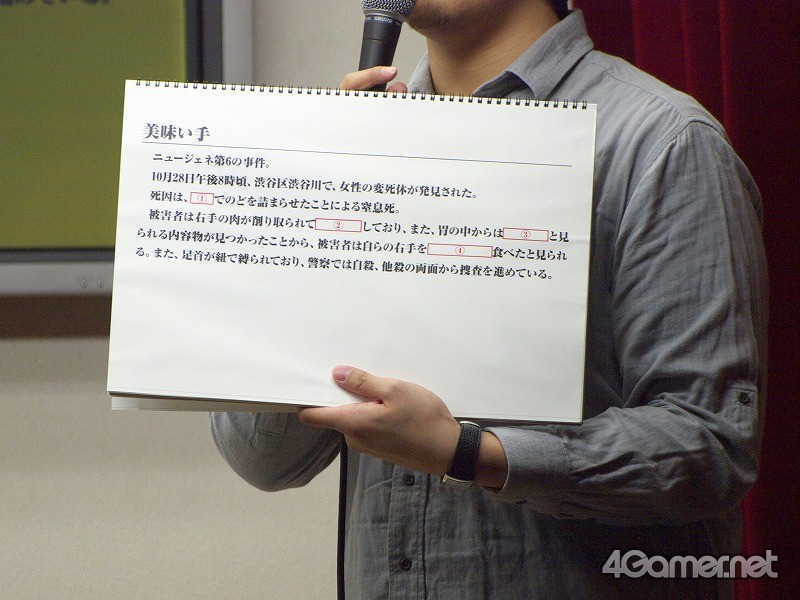 ている。
SHURE
美味い手
ニュージェネ第6の事件。
10月28日午後8時頃、渋谷区渋谷川で、女性の変死体が発見された。
死因は、①でのどを詰まらせたことによる窒息死。
被害者は右手の肉が削り取られて②しており、また、胃の中からは③と見
られる内容物が見つかったことから、被害者は自らの右手を④食べたと見られ
る。また、足首が紐で縛られており、警察では自殺、他殺の両面から捜査を進めている。
4Gamer.net